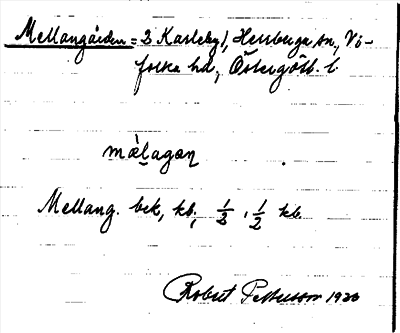 Mellangården = 3 Karleby, Herrberga sn, Vi-
folka hd, Östergötl. l.
mæ̀lagaɳ
Mellang. bek, kb, ½, ½ kb
Robert Pettersson 1923